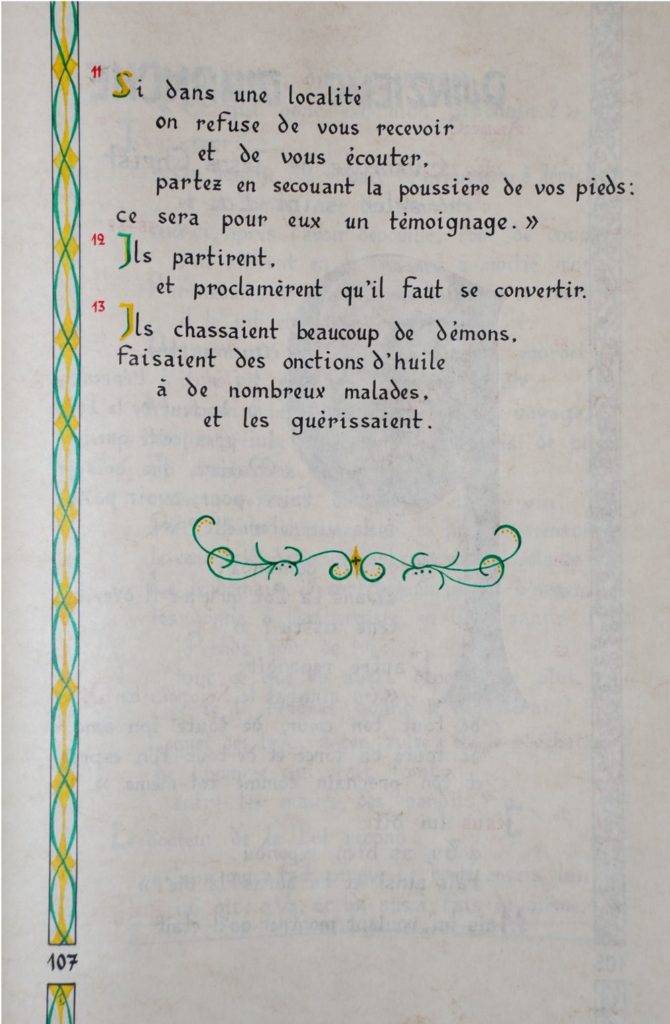 11 Si dans une localité
on refuse de vous recevoir
et de vous écouter,
partez en secouant la poussière de vos pieds:
ce sera pour eux un témoignage. »
12 Ils partirent,
et proclamèrent qu'il faut se convertir.
13 Ils chassaient beaucoup de démons,
faisaient des onctions d'huile
à de nombreux malades,
et les guérissaient.
107